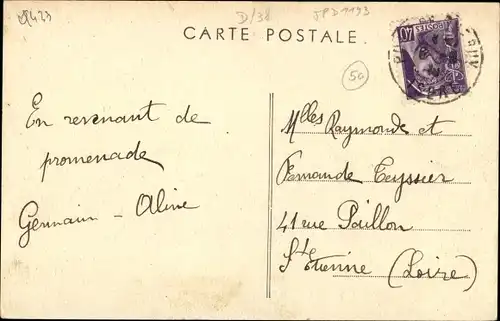 CARTE POSTALE
D/38
JPD1193
50
40
POSTES
En revenant de
promenade
Germain - Aline
Mlles Raymonde et
Fernande Teyssier
41 rue Paillon
St Etienne (Loire)